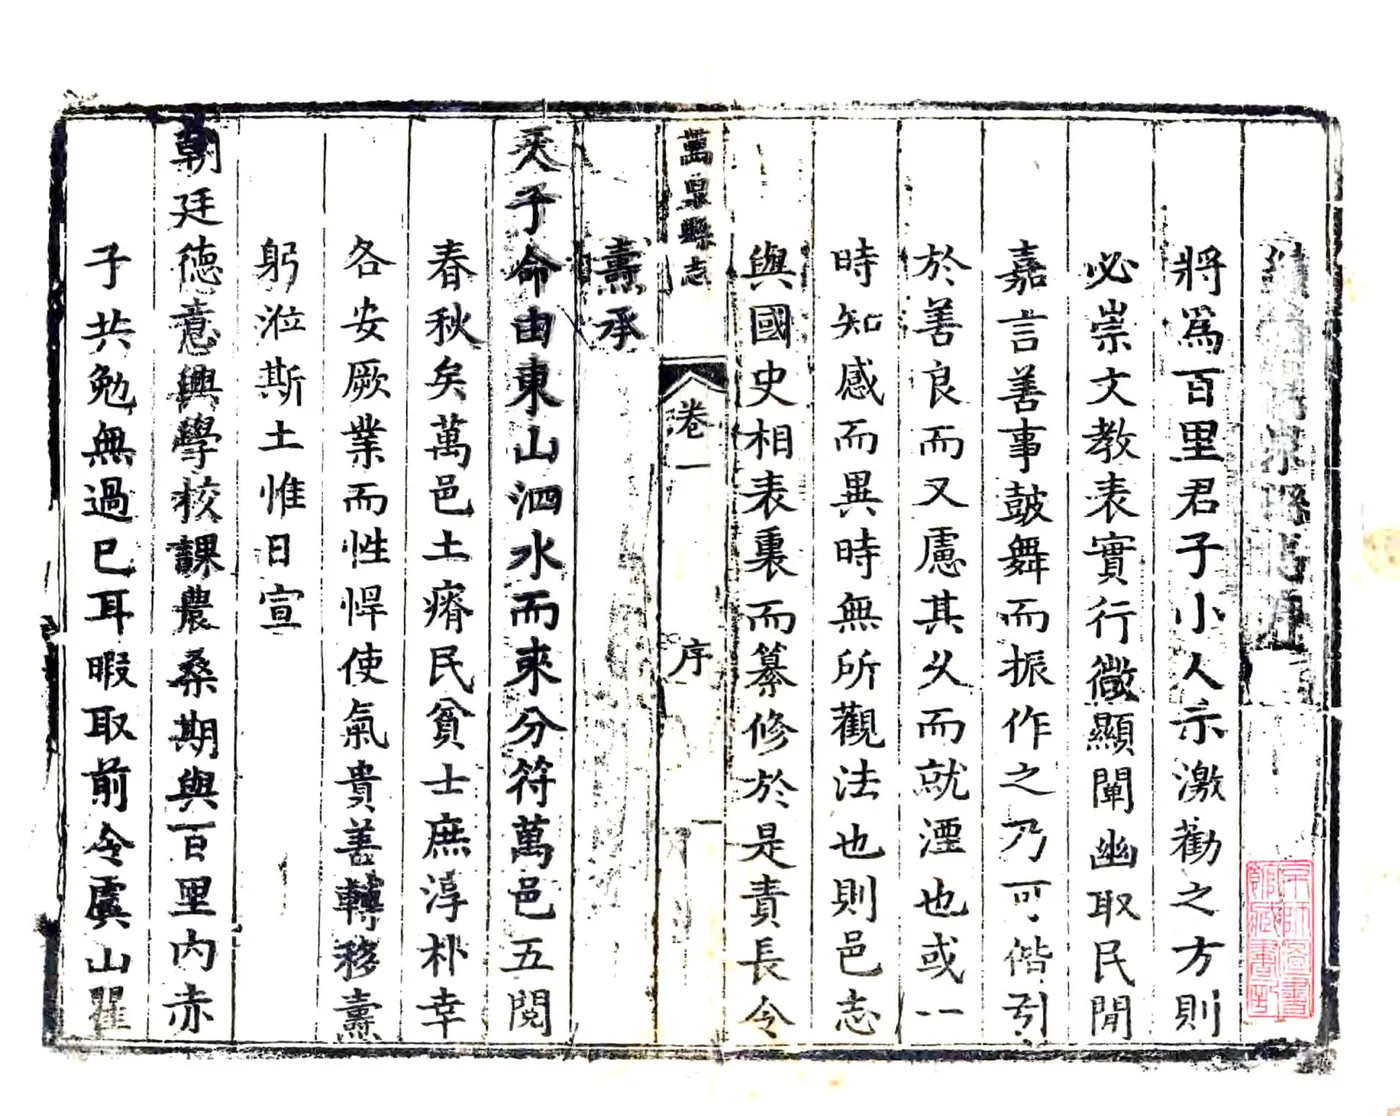 泉縣志序
將爲百里君子小人示激勸之方則
必崇文教表實行微顯闡幽取民間
嘉言善事鼓舞而振作之乃可偕引
於善良而又慮其久而就湮也或一
時知感而異時無所觀法也則邑志
與國史相表裏而纂修於是責長令
萬泉縣志
卷一
序
一
燾承
天子命由東山泗水而來分符萬邑五閱
春秋矣萬邑土瘠民貧士庶淳朴幸
各安厥業而性悍使氣貴善轉移燾
躬涖斯土惟日宣
朝廷德意興學校課農桑期與百里內赤
子共勉無過已耳暇取前令虞山瞿
京師圖書
館藏書記